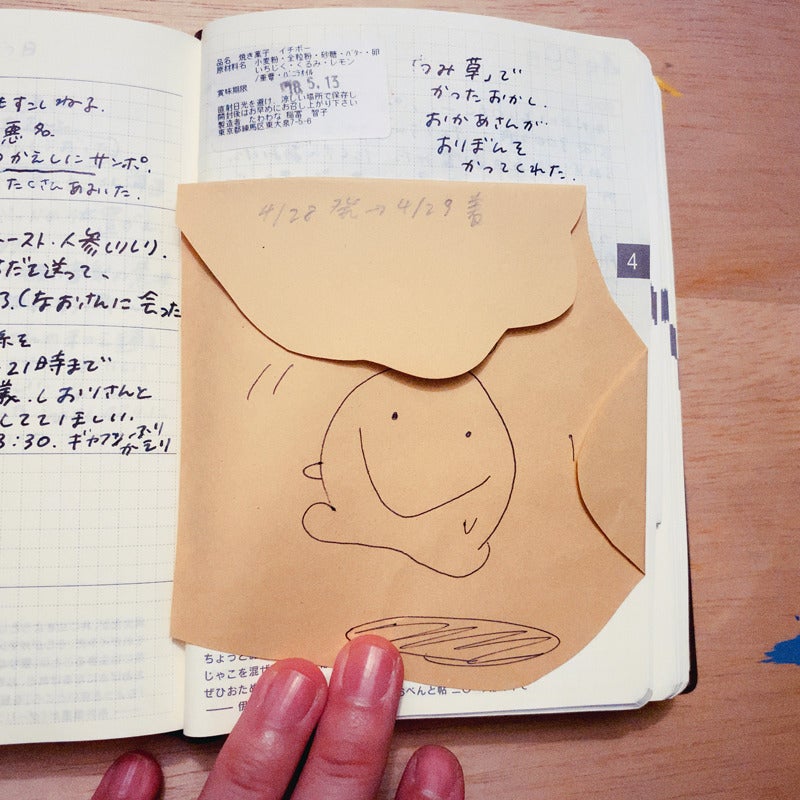 もすこしねる.
悪名.
かえしにサンポ.
たくさんあるいた.
ースト・人参しりしり.
送って、
3.(なおさんに会った
21時まで
しおりさんと
してほしい.
3:30. ギャフン ふり
かえり
品名 焼き菓子 イチボー
原材料名 小麦粉・全粒粉・砂糖・バター・卵
いちじく・くるみ・レモン
/重曹・バニラオイル
賞味期限 18.5.13
直射日光を避け、涼しい場所で保存し
開封後はお早めにお召し上がり下さい
製造者 たわわな 稲冨 智子
東京都練馬区東大泉7-5-6
「つみ草」で
かったおかし.
おかあさんが
おりぼんを
かってくれた.
4/28 発→4/29 着
4
ちょっと
じゃこを混ぜ
ぜひおため